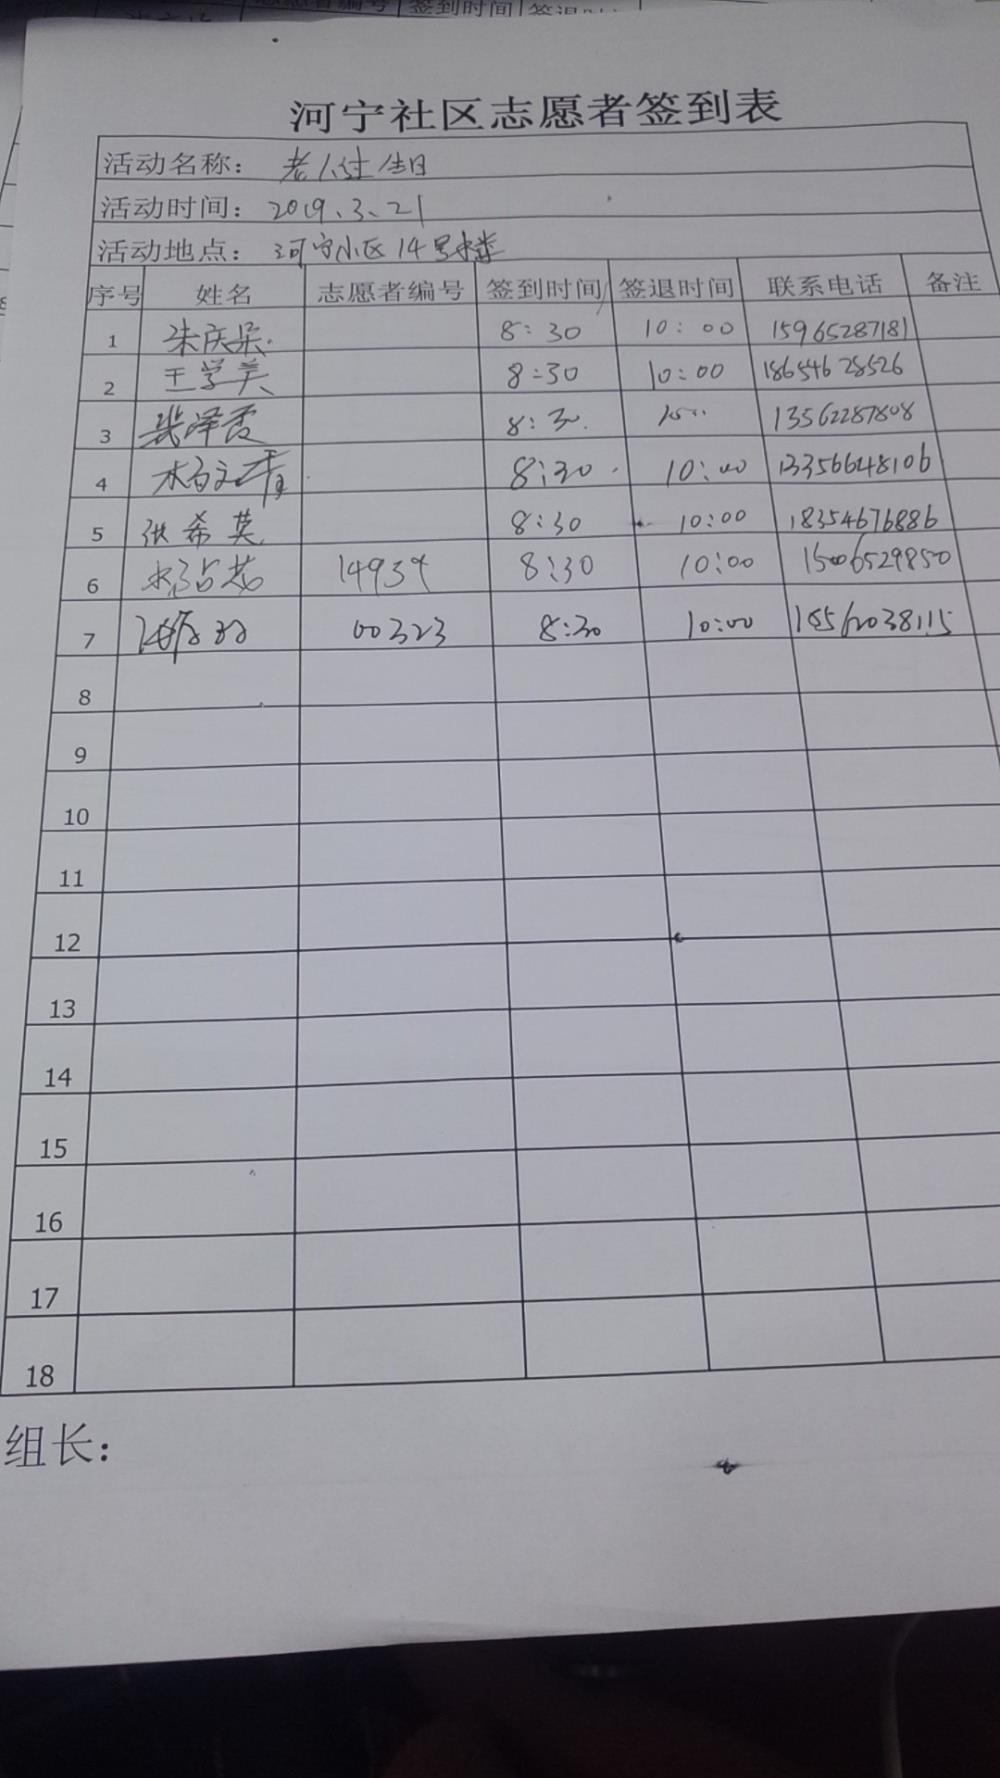 河宁社区志愿者签到表
活动名称： 老人过生日
活动时间： 2019.3.21
活动地点： 河宁小区14号楼
序号 姓名 志愿者编号 签到时间 签退时间 联系电话 备注
1 朱庆 8:30 10:00 15965287181
2 王学美 8:30 10:00 18654628526
3 裴泽霞 8:30 13562287808
4 8:30 10:00 13356648106
5 张希英 8:30 10:00 18354676886
6 14939 8:30 10:00 15006529850
7 00323 8:30 10:00 18562038115
8
9
10
11
12
13
14
15
16
17
18
组长：